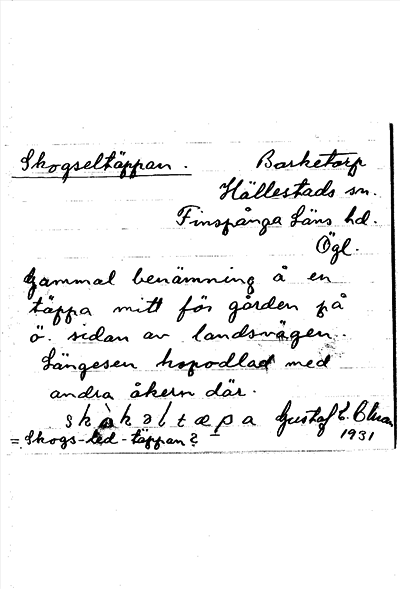 Skogseltäppan. Barketorp
Hällestads sn.
Finspånga Läns hd.
Ögl.
Gammal benämning å en
täppa mitt för gården på
ö. sidan av landsvägen.
Längesen hopodlad med
andra åkern där.
Gustaf E.
1931
= Skogs-led-täppan?